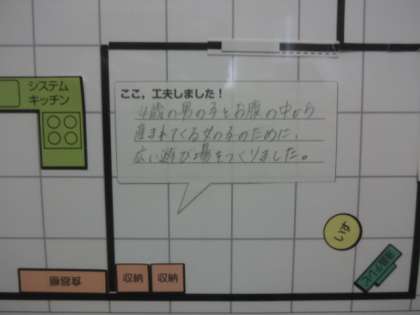 システム
キッチン
ここ，工夫しました！
4歳の男の子とお腹の中から
産まれてくる女の子のために、
広い遊び場をつくりました。
いす
食器棚
収納
収納